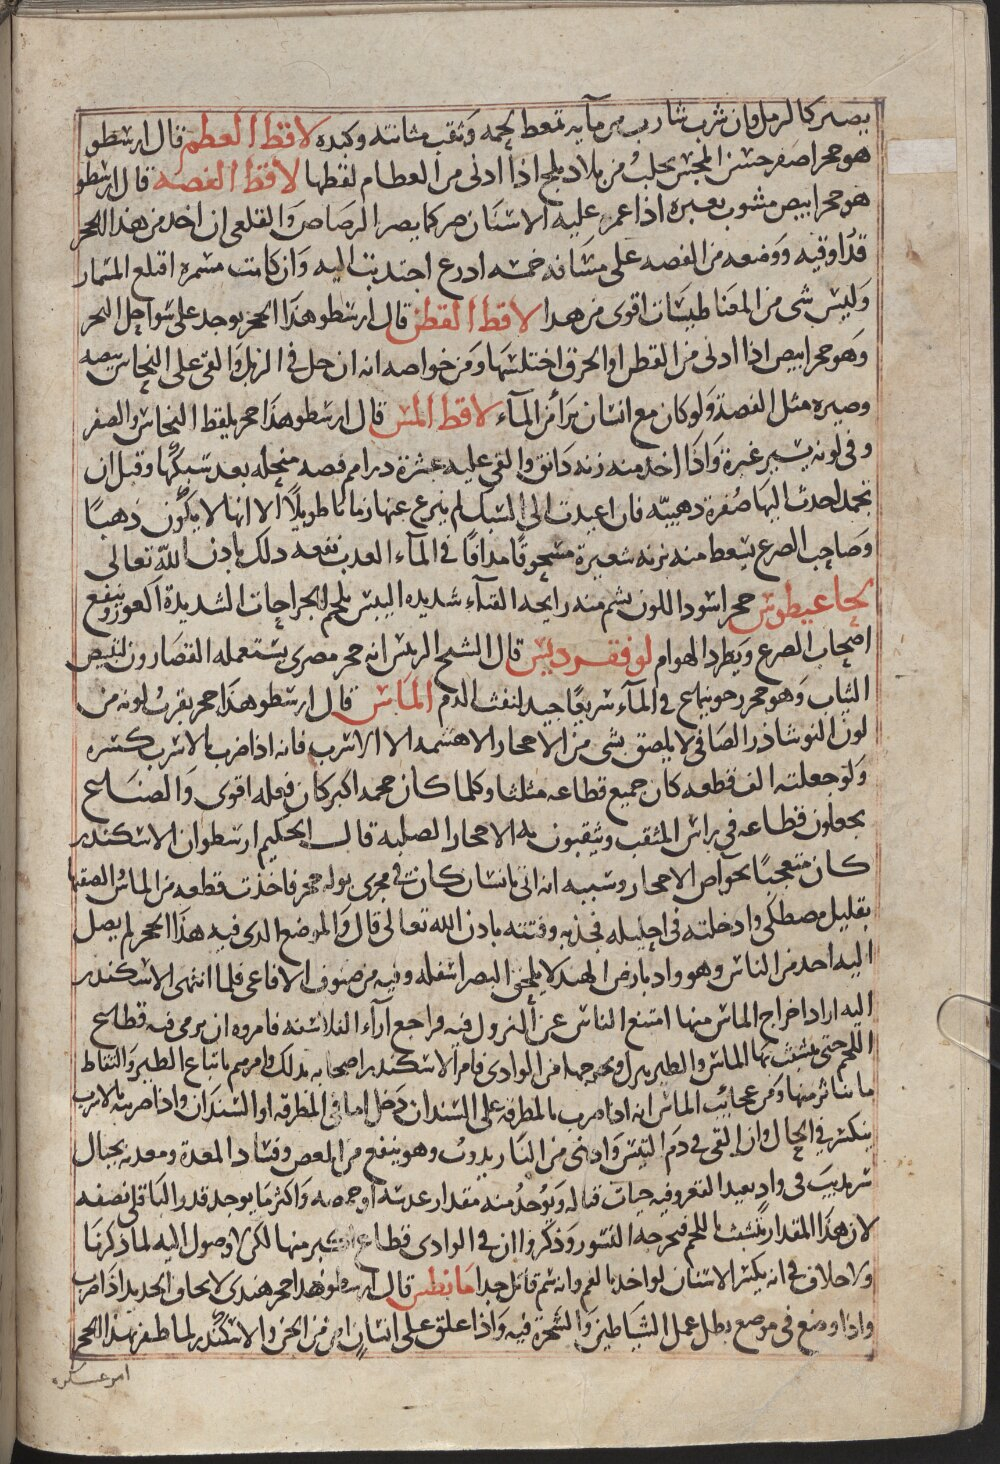 يصير كالرمل وان شرب شارب من مآيه تمعط لحمه وثقب مثانته وكبده لاقط العظم قال ارسطو
هو حجر اصفر خشن المجس يجلب من بلاد بلخ اذا ادنى من العظام لقطها لاقط الفضه قال ارسطو
هو حجر ابيض مشوب بغبره اذا غمز عليه الاسنان صر كما يصر الرصاص والقلعى ان اخذ من هذا الحجر
قدر اوقيه ووضعه من الفضه على مسافه خمسه ادرع اجتذبت اليه وان كانت مسمره اقتلع المسمار
وليس شى من المغناطيسات اقوى من هذا لاقط القطن قال ارسطو هذا الحجر يوجد على سواحل البحر
وهو حجر ابيض اذا ادنى من القطن او الخرق اختلسها ومن خواصه انه ان حل فى الزبل والقى على النحاس بيضه
وصيره مثل الفضة ولو كان مع انسان برأ من المآء لاقط المس قال ارسطو هذا حجر يلقط النحاس والصفر
وفى لونه يسير غبرة واذا اخذ منه زنه دانق والقى عليه عشرة درام فضه منحله بعد سبكها وقبل ان
تجمد لحدث اليها صفرة دهبيه فان اعيدت الى السبك لم ينزع عنها زمانا طويلا الا انها لا يكون ذهبا
وصاحب الصرع يسعط منه بزنه شعيرة مسحوقا مدافا فى المآء العذب نفعه ذلك باذن الله تعالى
لحاغيطوس حجر اسود اللون يشم منه رايحه القنآء شديده اليبس يلحم الجراحات الشديدة الغور وينفع
اصحاب الصرع ويطرد الهوام لوفقرديس قال الشيخ الريس انه حجر مصرى يستعمله القصارون لتبيض
الثياب وهو حجر رخو ينماع فى المآء سريعا جيد لنفث الدم الماس قال ارسطو هذا حجر يقرب لونه من
لون النوشاذر الصافى لا يلصق بشى من الاحجار الا هشمه الا الاسرب فانه اذا ضرب بالاسرب كسره
ولو جعلته الف قطعه كان جميع قطاعه مثلثا وكلما كان حجمه اكبر كان فعله اقوى والصناع
يجعلون قطاعه فى راس المثقب ويثقبون به الاحجار الصلبه قال الحكيم ارسطو ان الاسكندر
كان متعجبا بخواص الاحجار وسببه انه اتى بانسان كانت فى مجرى بوله حجر فاخذت قطعه من الماس الصقها
بقليل مصطكى وادخلته فى احليله فجذبه وفتته باذن الله تعالى قال والموضع الذى فيه هذا الحجر لم يصل
اليه احد من الناس وهو واد بارض الهند لا يلحق البصر اسفله وفيه من صنوف الافاعى فلما انتهى الاسكندر
اليه اراد اخراج الماس منها امتنع الناس عن النزول فيه فراجع آراء الفلاسفه فامروه ان يرمى فيه قطاع
اللحم حتى يتشبث بها الماس والطير ينزل ويخرجها من الوادى فامر الاسكندر اصحابه بذلك وامرهم باتباع الطير والتقاط
ما يتناثر منها ومن عجائب الماس انه اذا ضرب بالمطرقه على السندان دخل اما فى المطرقه او السندان واذا ضربته بالاسرب
ينكسر فى الحال وان القى فى دم التيس وادنى من النار يذوب وهو ينفع من المغص وفساد المعدة ومعدنه بجبال
سرنديب فى واد بعيد القعر وفيه حيات قتاله ويوخذ منه مقدار عدسه او حمصه واكثر ما يوجد قدر الباقلى نصفه
لان هذا المقدار يتشبث باللحم فيخرجه النسور وذكروا ان فى الوادى قطاع اكبر منها لكن لا وصول اليه لما ذكرنا
ولا خلاف فى انه يكسر الاسنان لو اخذ بالفم وانه سم قاتل جدا مانطس قال ارسطو هذا حجر هندى لا يحاق الحديد اذا ضرب
واذا وضع فى موضع بطل عمل الشياطين والسحرة فيه واذا علق على انسان امن من الجن والاسكندر لما ظفر بهذا الحجر
امر عسكره